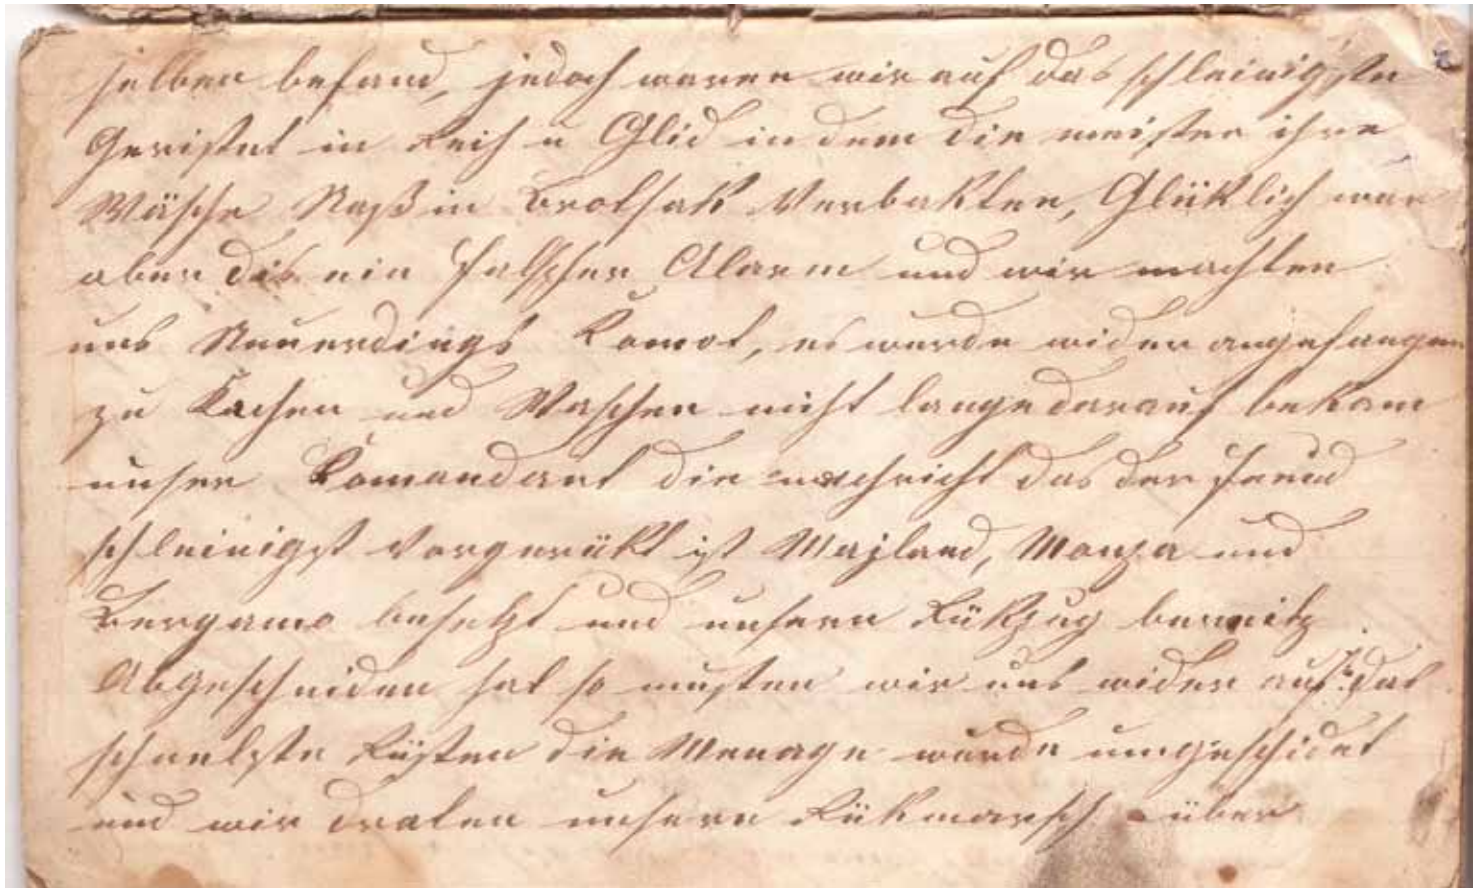 selben befand, jedoch waren wir auf das schleinigste
Geristet in Reih u Glid in dem die meisten ihre
Wäsche Naß in Brotsak Verbakten, Glüklich war
aber dis ein falscher Alarm und wir machten
uns Neuerdings Komot, es wurde wider angefangen
zu Kochen und Waschen nicht lange darauf bekam
unser Komandant die nachricht das der Feind
schleinigst Vorgerükt ist Majland, Monza und
Bergamo besetzt und unsern Rükzug bereitz
Abgeschniden hat so musten wir uns wider auf das
schnelste Rüsten die Menage wurde umgeschidet
und wir draten unsern Rükmarsch über